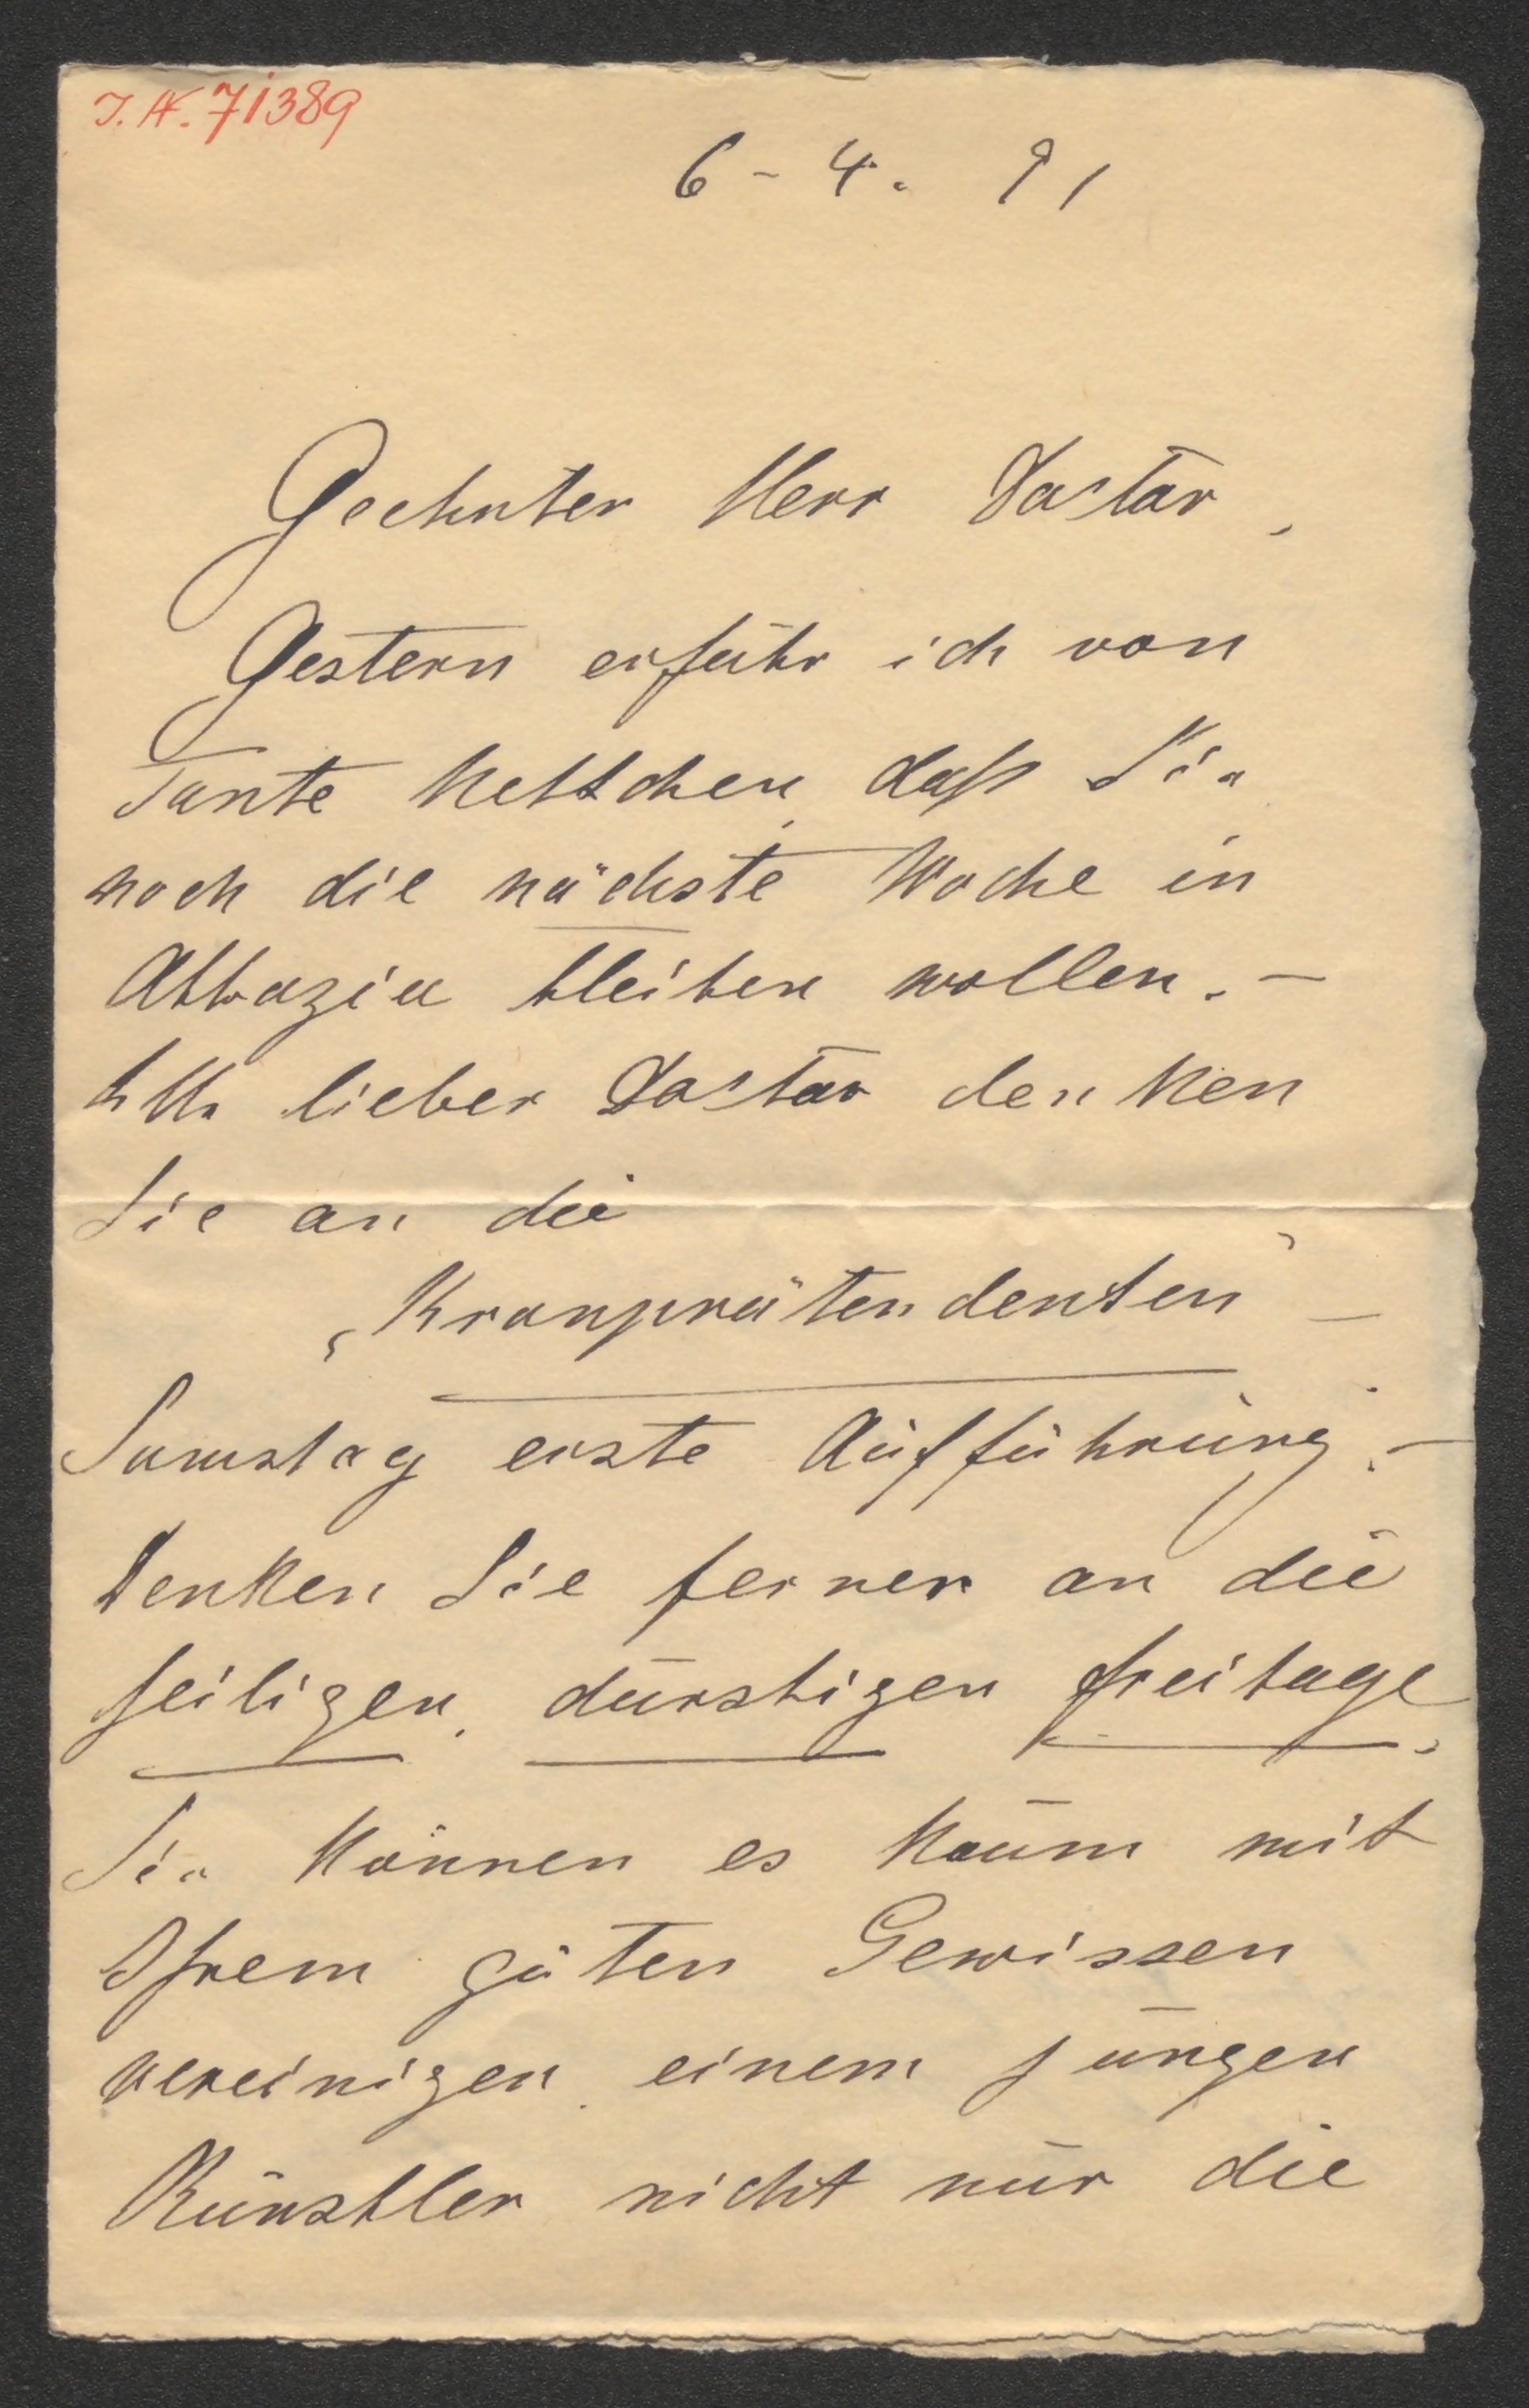 I.N. 71389
6-4. 91
Geehrter Herr Doctor,
Gestern erfuhr ich von
Tante Nettchen, daß Sie
noch die nächste Woche in
Abbazia bleiben wollen. –
bitte lieber Doctor denken
Sie an die
„Kronprätendenten" –
Samstag erste Aufführung. –
Denken Sie ferner an die
heiligen, durstigen Freitage.
Sie können es kaum mit
Ihrem guten Gewissen
vereinigen, einem jungen
Künstler nicht nur die